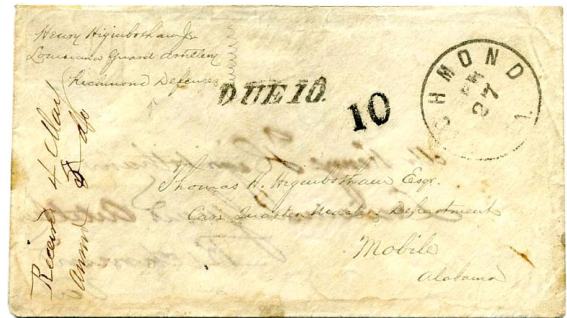 Henry Higinbotham Jr
Louisiana Guard Artillery
Richmond Defences
DUE 10.
10
HMOND
27
Thomas H. Higinbotham Esqr.
Care Quarter Masters Department
Mobile
Alabama
Received 4 May